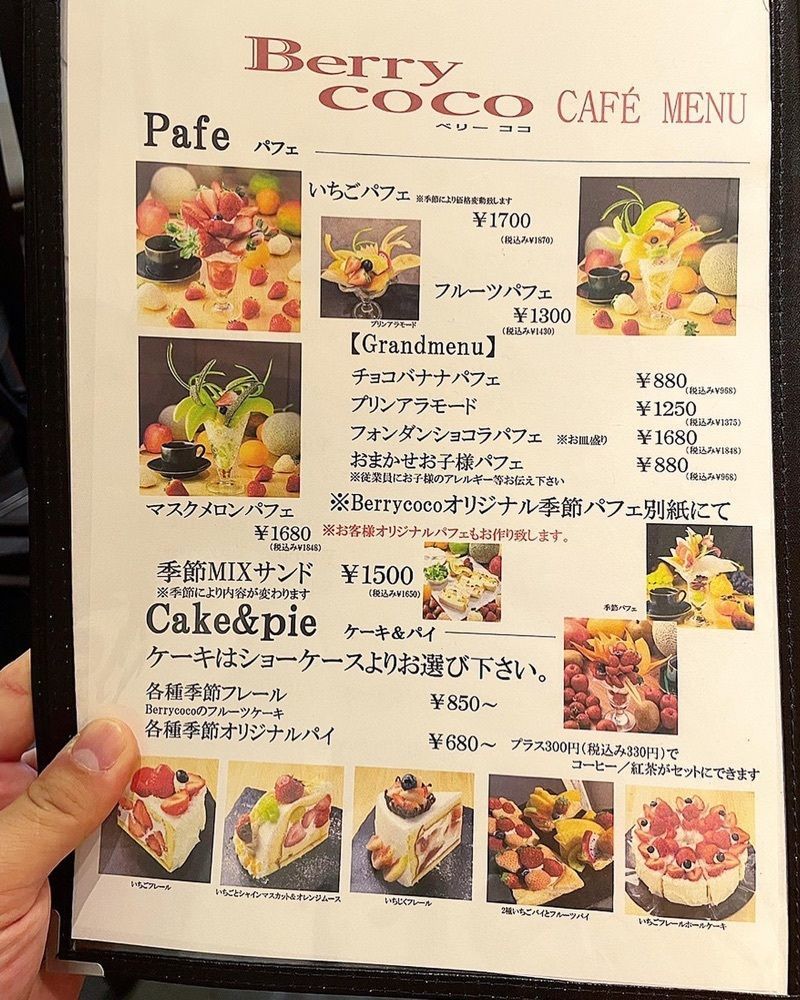 Berry
coco CAFÉ MENU
ベリー ココ
Pafe パフェ
いちごパフェ ※季節により価格変動致します
¥1700
(税込み¥1870)
プリンアラモード
フルーツパフェ
¥1300
(税込み¥1430)
【Grandmenu】
チョコバナナパフェ ¥880
(税込み¥968)
プリンアラモード ¥1250
(税込み¥1375)
フォンダンショコラパフェ ※お皿盛り ¥1680
(税込み¥1848)
おまかせお子様パフェ ¥880
(税込み¥968)
※従業員にお子様のアレルギー等お伝え下さい
マスクメロンパフェ
¥1680
(税込み¥1848)
※Berrycocoオリジナル季節パフェ別紙にて
※お客様オリジナルパフェもお作り致します。
季節MIXサンド ¥1500
(税込み¥1650)
※季節により内容が変わります
季節パフェ
Cake&pie ケーキ&パイ
ケーキはショーケースよりお選び下さい。
各種季節フレール ¥850～
Berrycocoのフルーツケーキ
各種季節オリジナルパイ ¥680～
プラス300円(税込み330円)で
コーヒー/紅茶がセットにできます
いちごフレール
いちごとシャインマスカット&オレンジムース
いちじくフレール
2種いちごパイとフルーツパイ
いちごフレールホールケーキ